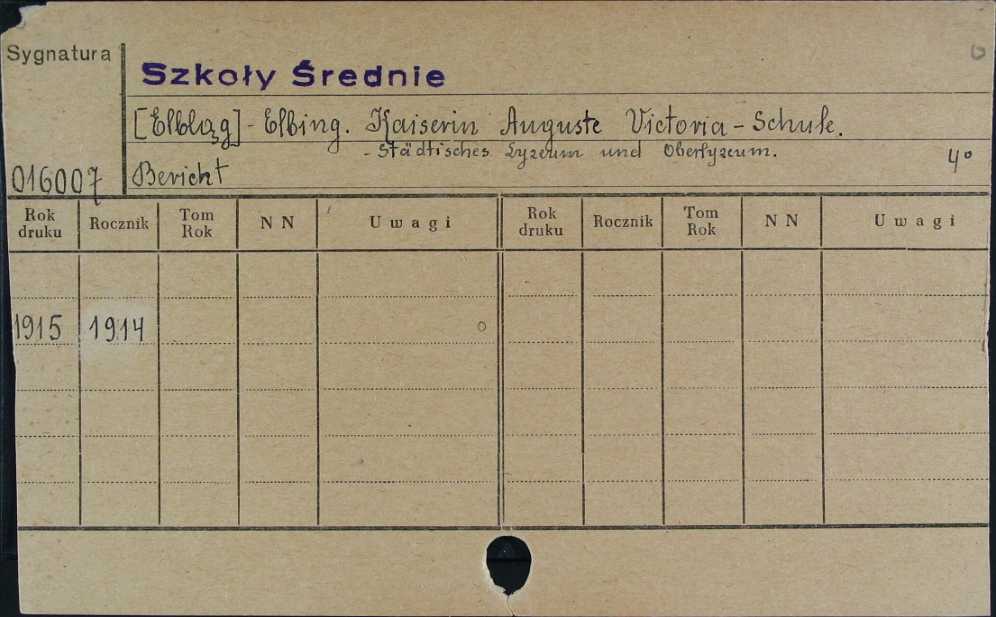 Sygnatura
Szkoły Średnie
[Elbląg] - Elbing. Kaiserin Auguste Victoria - Schule.
- Städtisches Lyzeum und Oberlyzeum.
4°
016007
Bericht
Rok druku Rocznik Tom Rok N N Uwagi Rok druku Rocznik Tom Rok N N Uwagi
1915 1914